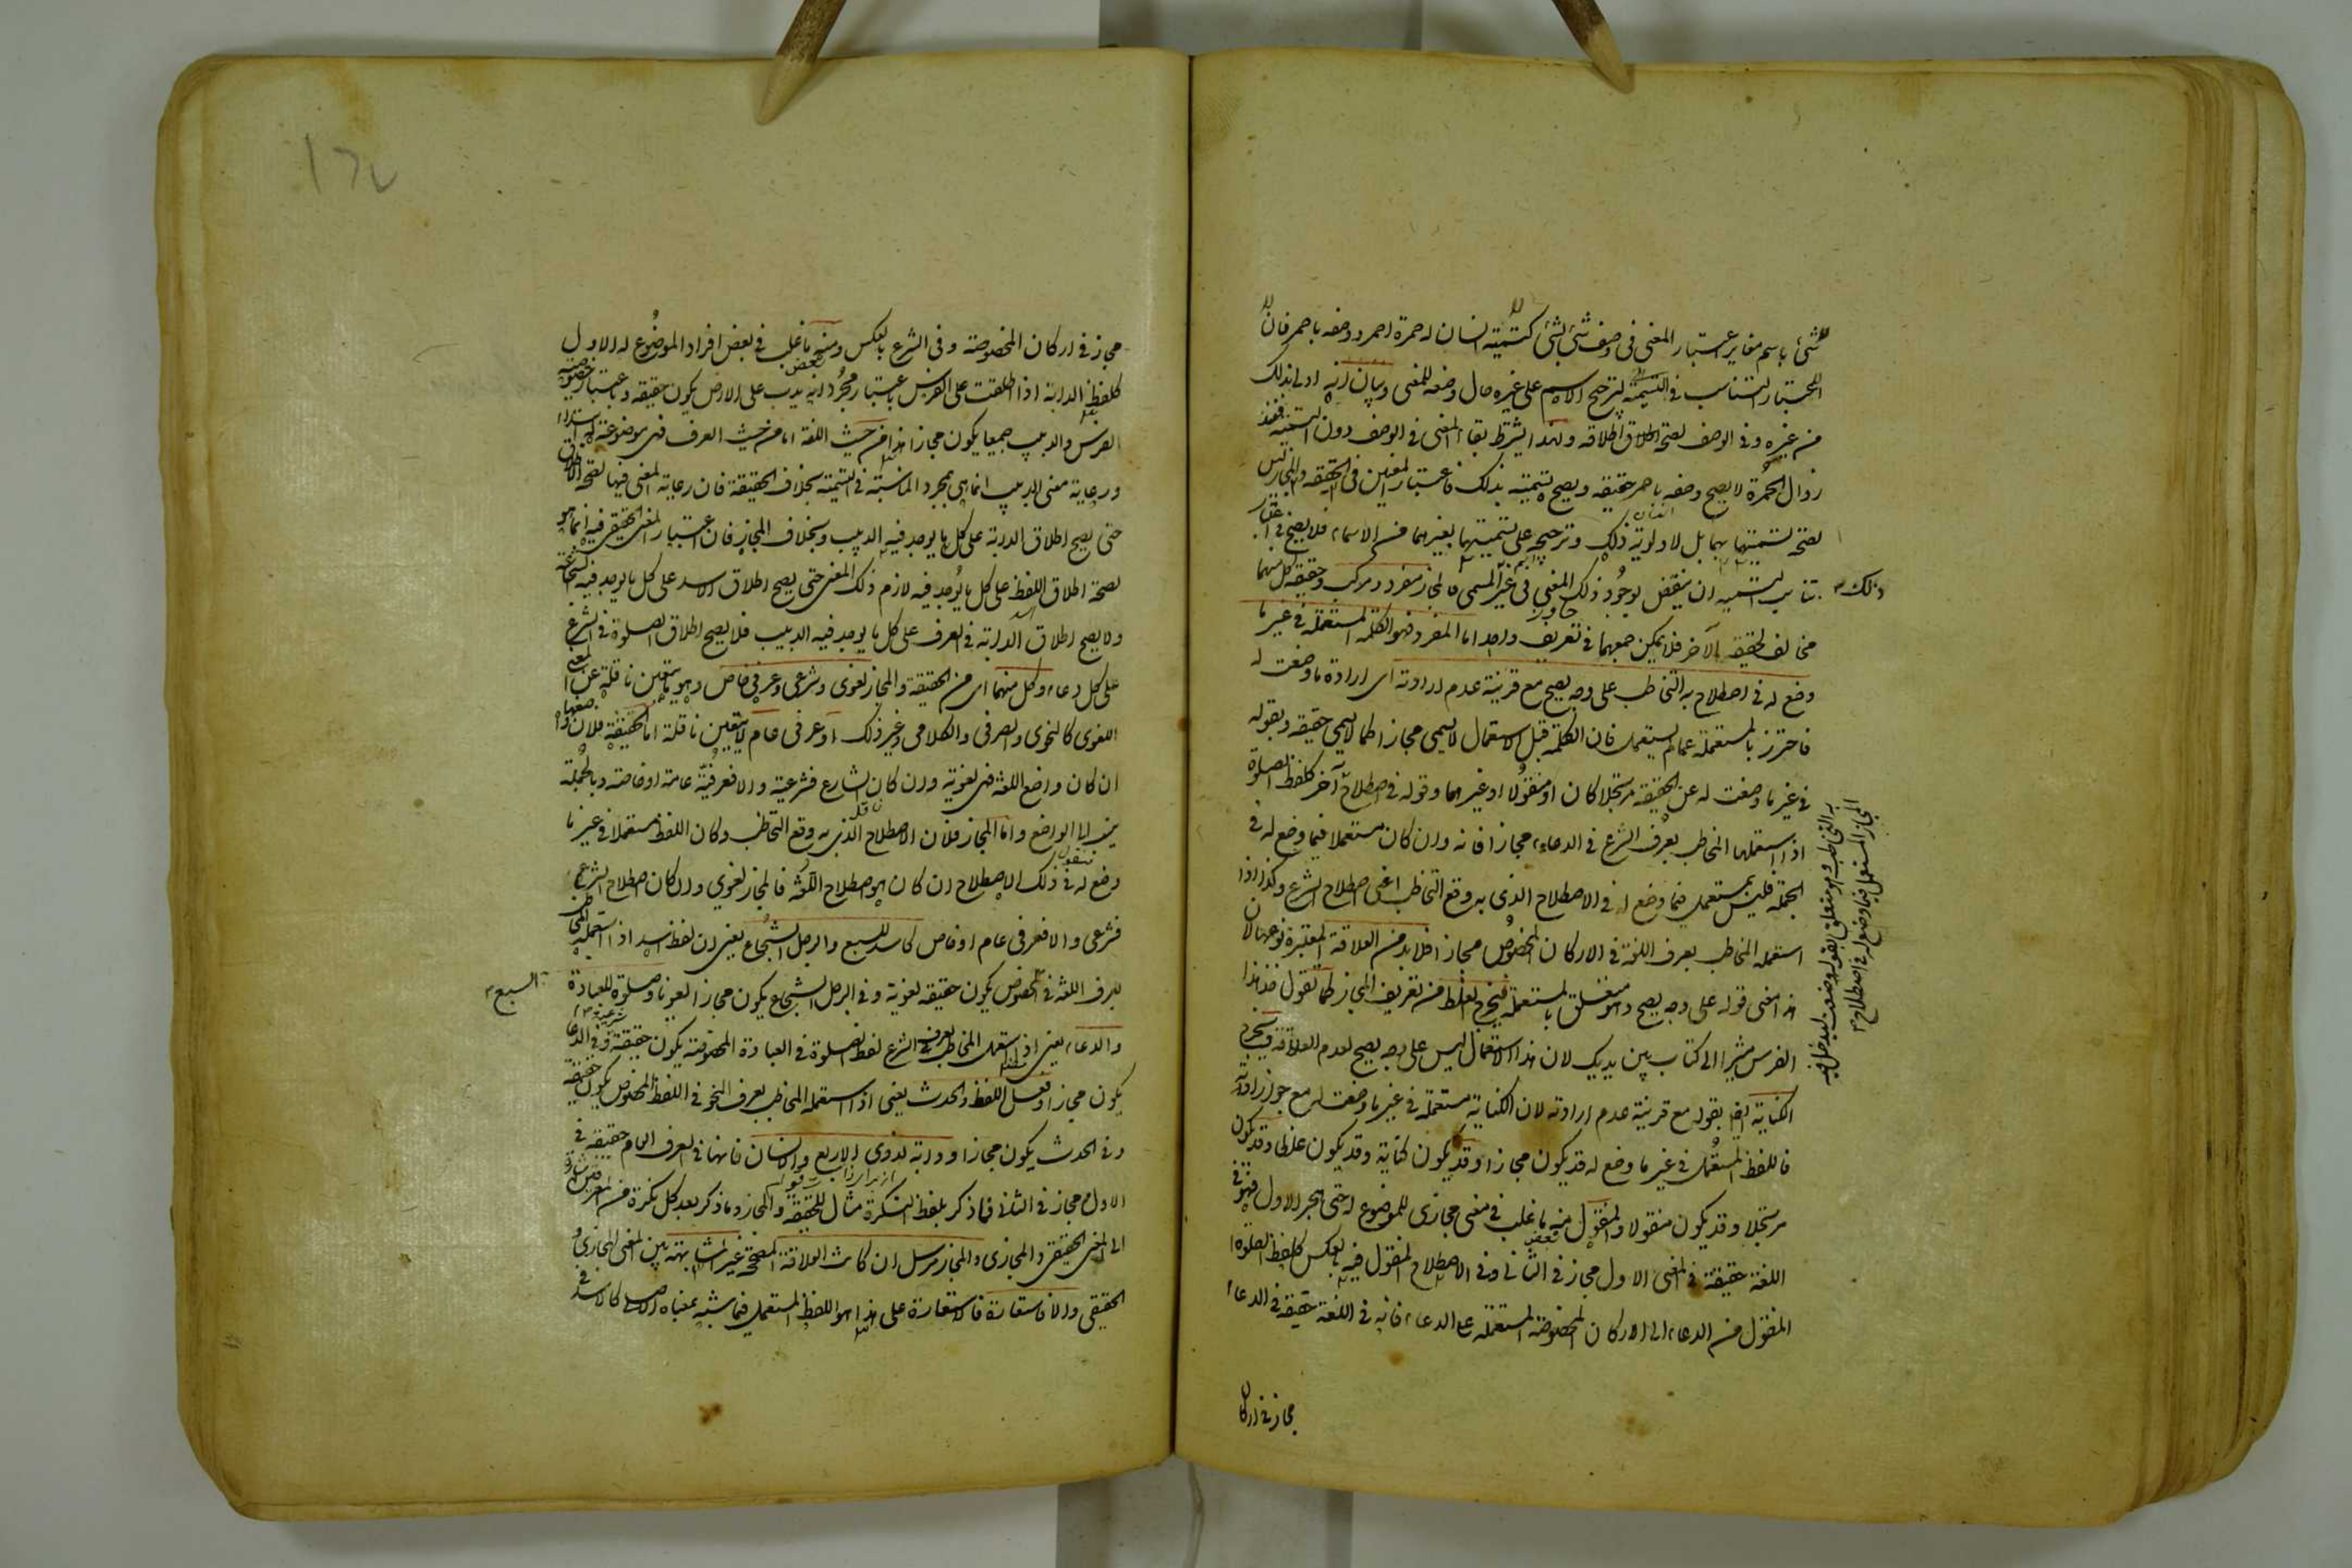 شئ باسم مغاير اعتبار المعنى فى وصف شئ بشئ كتسمية انسان له حمرة احمر ووصفه باحمر فان
اعتبار التناسب فى التسمية لترجيح الاسم على غيره حال وضعه للمعنى وبيان انه اولى بذلك
من غيره وفى الوصف لصحة اطلاقه ولهذا اشترط بقاء المعنى فى الوصف دون التسمية فعند
زوال الحمرة لا يصح وصفه باحمر حقيقه ويصح تسميته بذلك فاعتبار المعنيين فى الحقيقه والمجاز ليس
لصحة تسميتهما بهما بل لاولوية ذلك وترجيحه على تسميتهما بغيرهما من الاسماء فلا يصح فى اعتبار
تناسب التسميه ان ينقض بوجود ذلك المعنى فى غير المسمى فالمجاز مفرد ومركب وحقيقة كل منهما
ذلك
مخالف لحقيقه الآخر فلا يمكن جمعهما فى تعريف واحد اما المفرد فهو الكلمه المستعمله فى غير ما
وضع له فى اصطلاح به التخاطب على وجه يصح مع قرينة عدم ارادته اى ارادة ما وضعت له
فاحترز بالمستعملة عما لم يستعمل فان الكلمة قبل الاستعمال لا يسمى مجازا كما لا يسمى حقيقه وبقوله
فى غير ما وضعت له عن الحقيقه مرتجلا كان او منقولا او غيرهما وقوله فى اصطلاح
به التخاطب وهو متعلق بقوله وضعت ليدخل فيه
المجاز المستعمل فيما وضع له فى اصطلاح
آخر كلفظ الصلوة
اذا استعملها المخاطب بعرف الشرع فى الدعاء مجازا فانه وان كان مستعملا فيما وضع له فى
الجملة فليس بمستعمل فيما وضع له فى الاصطلاح الذى به وقع التخاطب اعنى اصطلاح الشرع وكذا اذا
استعمله المخاطب بعرف اللغة فى الاركان المخصوص مجازا فلا بد من العلاقة المعتبرة نوعها لان
هذا معنى قوله على وجه يصح وهو متعلق بالمستعمله فيخرج الغلط من تعريف المجاز كما تقول خذ هذا
الفرس مشيرا الى كتاب بين يديك لان هذا الاستعمال ليس على وجه يصح لعدم العلاقة ويخرج
الكناية ايضا بقوله مع قرينة عدم ارادته لان الكناية مستعمله فى غير ما وضعت له مع جواز ارادته
فاللفظ المستعمل فى غير ما وضع له قد يكون مجازا وقد يكون كناية وقد يكون غلطا وقد يكون
مرتجلا وقد يكون منقولا والمنقول منه ما غلب فى معنى مجازى للموضوع له حتى هجر الاول فهو فى
اللغة حقيقة فى المعنى الاول مجاز فى الثانى وفى الاصطلاح المنقول فيه بالعكس كلفظ الصلوة
المنقول من الدعاء الى الاركان المخصوصة المشتملة على الدعاء فانه فى اللغة حقيقة فى الدعاء
مجاز فى اركان
مجاز فى اركان المخصوصة وفى الشرع بالعكس ومنه ما غلب فى بعض افراد الموضوع له الاول
كلفظ الدابة اذا اطلقت على الفرس باعتبار مجرد انه يدب على الارض يكون حقيقه وباعتبار خصوصية
الفرس والدبيب جميعا يكون مجازا هذا من حيث اللغة اما من حيث العرف فهى موضوعة له ابتداء
ورعاية معنى الدبيب انما هى بمجرد المناسبة فى التسمية بخلاف الحقيقة فان رعاية المعنى فيها لصحة الاطلاق
حتى يصح اطلاق الدابة على كل ما يوجد فيه الدبيب وبخلاف المجاز فان اعتبار المعنى الحقيقى فيه انما هو
لصحة اطلاق اللفظ على كل ما يوجد فيه لازم ذلك المعنى حتى يصح اطلاق الاسد على كل ما يوجد فيه الشجاعة
ولا يصح اطلاق الدابة فى العرف على كل ما يوجد فيه الدبيب فلا يصح اطلاق الصلوة فى الشرع
على كل دعاء وكل منهما اى من الحقيقة والمجاز لغوى وشرعى وعرفى خاص وهو ما يتعين ناقله عن المعنى
اللغوى كالنحوى والصرفى والكلامى وغير ذلك او عرفى عام لا يتعين ناقله اما الحقيقة فلان واضعها
ان كان واضع اللغة فهى لغوية وان كان الشارع فشرعية والا فعرفية عامة او خاصة وبالجملة
ينسب الى الواضع واما المجاز فلان الاصطلاح الذى به وقع التخاطب وكان اللفظ مستعملا فى غير ما
وضع له فى ذلك الاصطلاح ان كان هو اصطلاح اللغة فالمجاز لغوى وان كان اصطلاح الشرع
فشرعى والا فعرفى عام او خاص كاسد للسبع والرجل الشجاع يعنى ان لفظ اسد اذا استعمله المخاطب
بعرف اللغة فى المخصوص يكون حقيقه لغوية وفى الرجل الشجاع يكون مجازا لغويا وصلوة للعبادة
السبع
والدعاء يعنى اذا استعمل المخاطب بعرف الشرع لفظ الصلوة فى العبادة المخصوصة يكون حقيقة وفى الدعاء
يكون مجازا وفعل للفظ والحدث يعنى اذا استعمله المخاطب بعرف النحو فى اللفظ المخصوص يكون حقيقة
وفى الحدث يكون مجازا ودابة لذوى الاربع والانسان فانها فى العرف العام حقيقة فى
الاول مجاز فى الثانى فما ذكر بلفظ النكرة مثال للحقيقة والمجاز وما ذكر بعد كل نكرة من المعرفتين اشارة
الى المعنى الحقيقى والمجازى والمجاز مرسل ان كانت العلاقة المصححة غير المشابهة بين المعنى المجازى و
الحقيقى والا فاستعارة فالاستعارة على هذا هو اللفظ المستعمل فيما شبه بمعناه الاصلى كالاسد فى